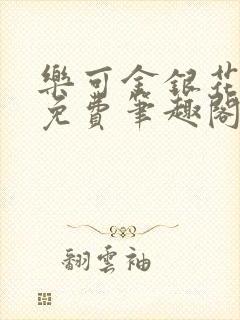 樂可金銀花
免費筆趣閣
翻雲袖